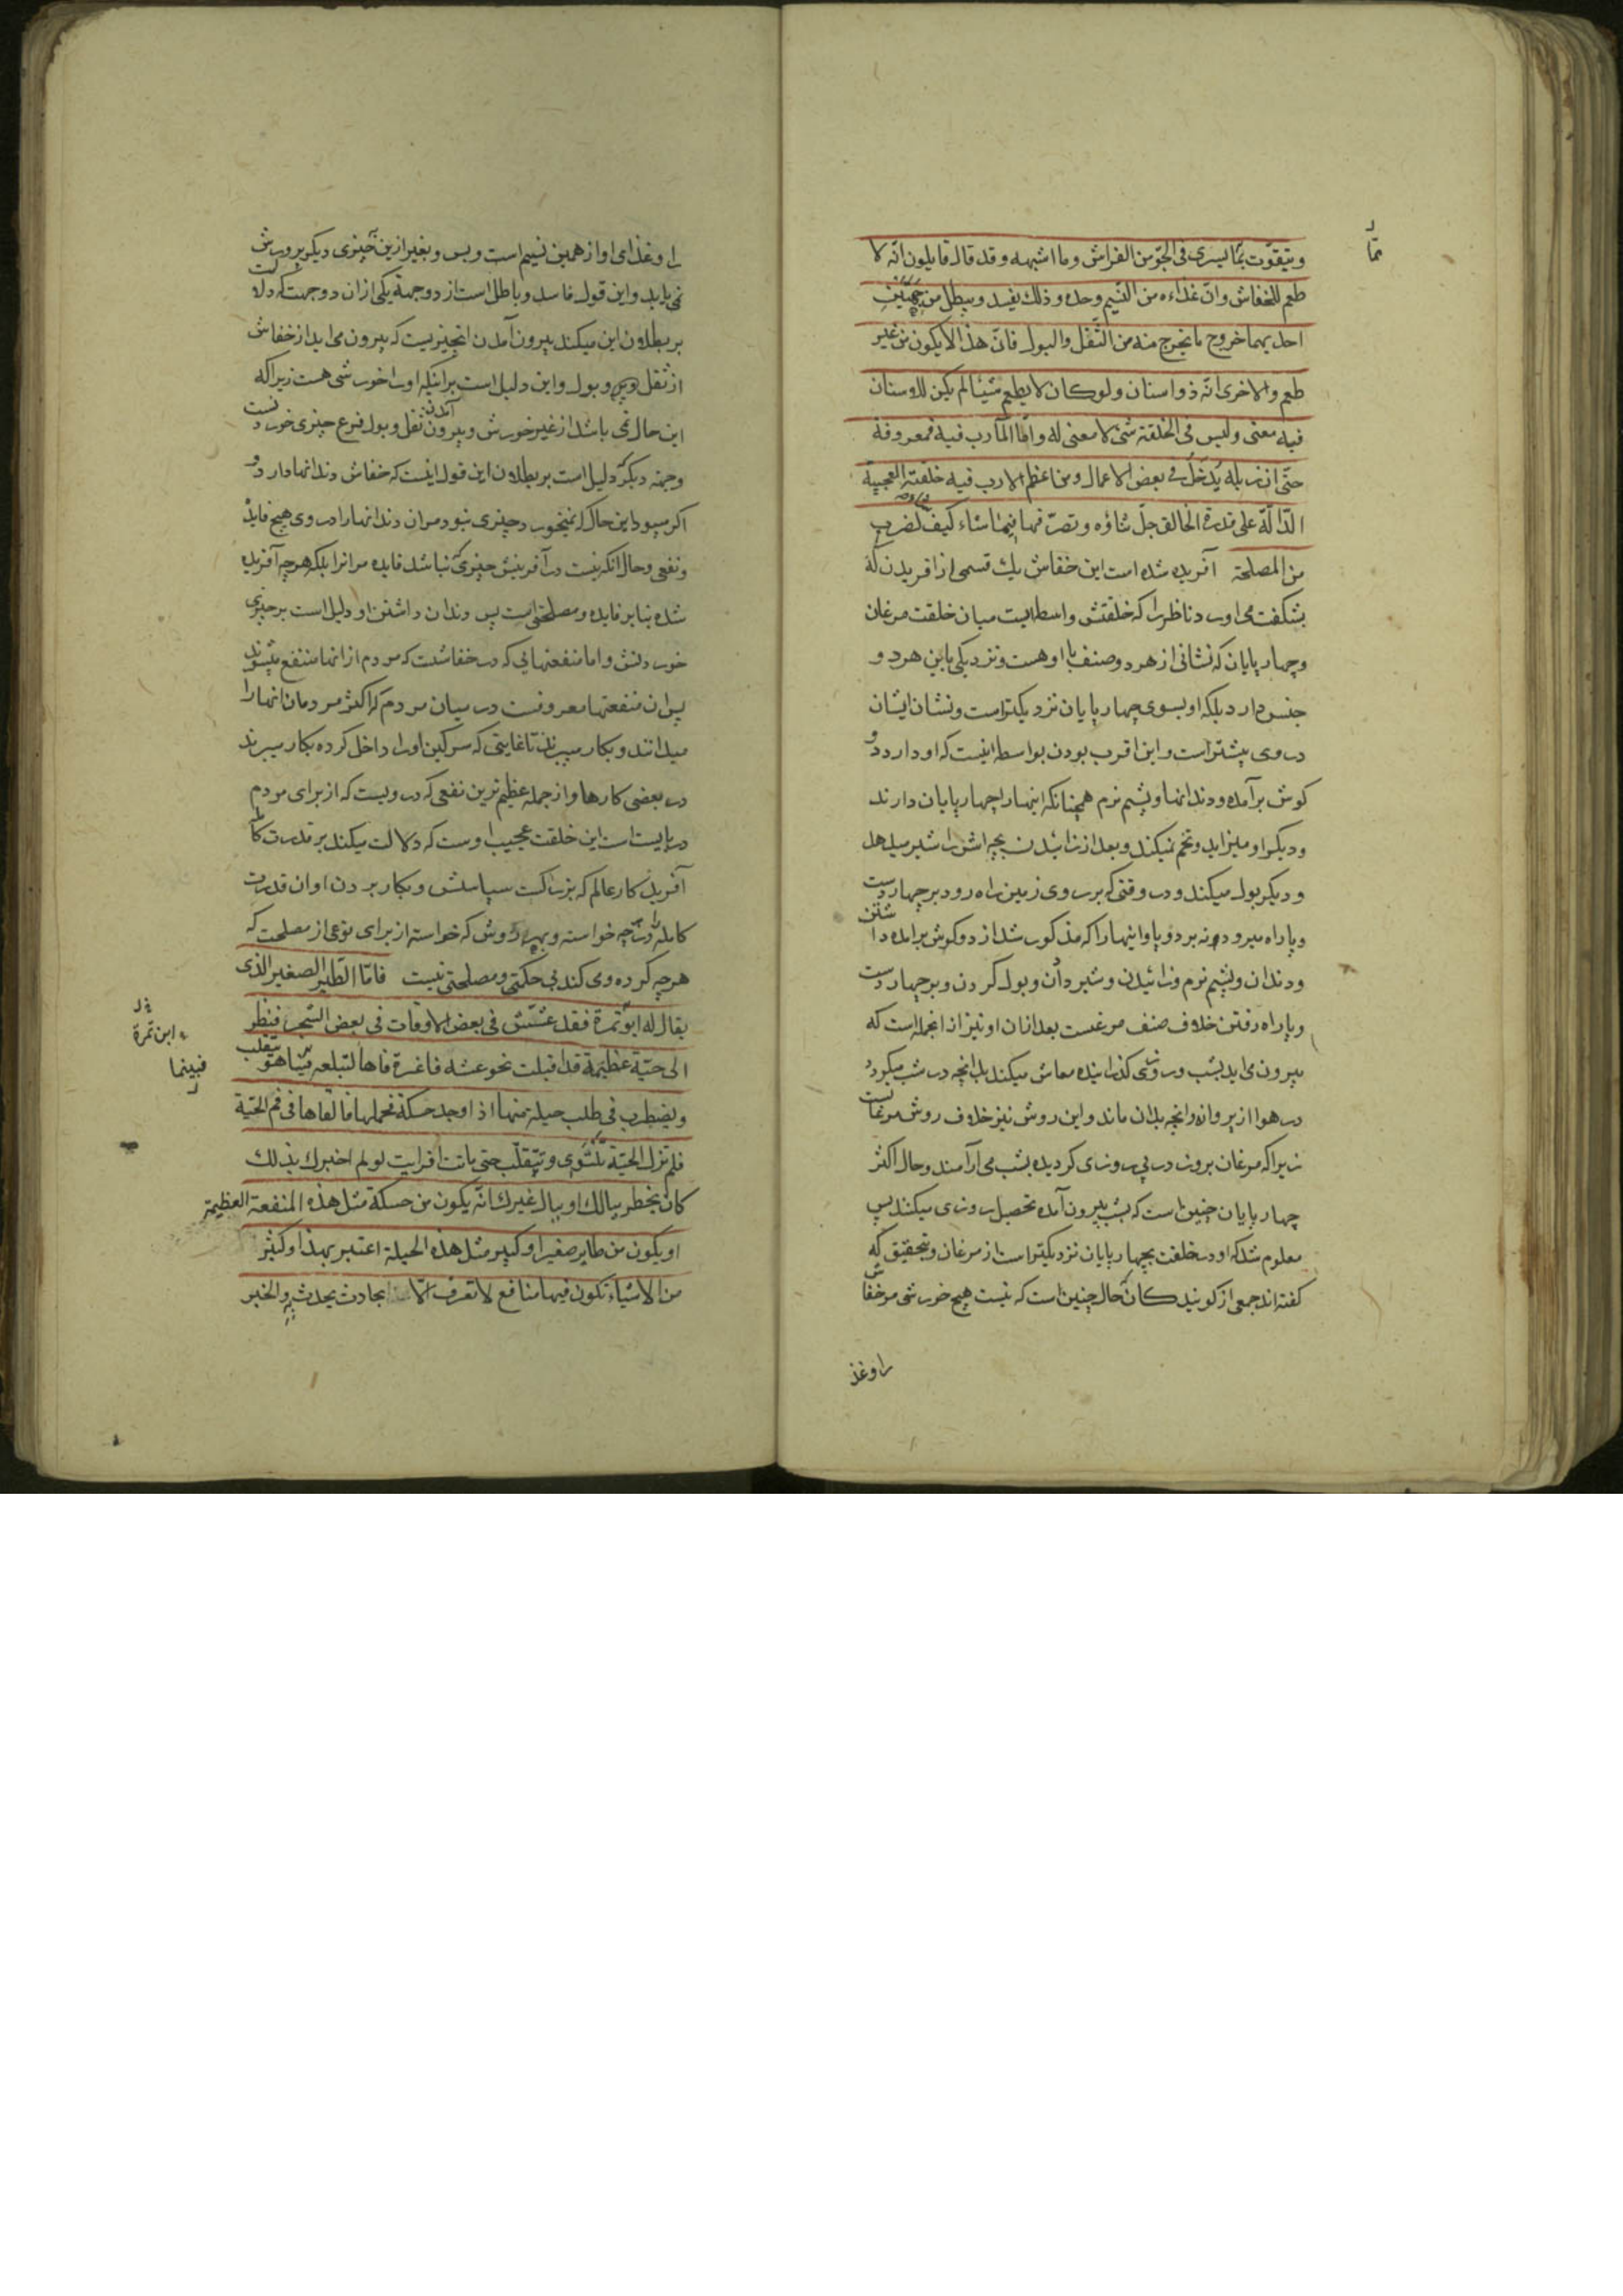 ويتقوّت بمّا يسرى فى الجّو من الفراش وما اشبهه وقد قال قايلون انّه لا
طعم للخفاش وانّ غذاءه من النّسيم وحده وذلك يفسد ويبطل من جهتين
احديهما خروج ما يخرج منه من الثّفل والبول فانّ هذا لا يكون من غير
طعم والاخرى انّه ذو اسنان ولو كان لا يطعم شيئا لم يكن للاسنان
فيه معنى وليس فى الخلقة شئ لا معنى له وامّا المآرب فيه فمعروفة
حتّى ان زبله يدخل فى بعض الاعمال ومن اعظم الارب فيه خلقته العجيبة
الدّالّة على قدرة الخالق جلّ ثناؤه وتصرّفها فيما شاء كيف لضرب
من المصلحة آفريده شده است اين خفاش يك قسمى از افريدن كه
بشكفت مى اورد ناظر را كه خلقتش واسطه ايست ميان خلقت مرغان
وچهار پايان كه نشانى از هر دو صنف با او هست ونزديكى باين هر دو
جنس دارد بلكه او بسوى چهار پايان نزديكتر است ونشان ايشان
در وى بيشتر است واين اقرب بودن بواسطه اينست كه او دارد دو
كوش برآمده ودندانها وپشم نرم همچنانكه اينها را چهار پايان دارند
وديكر او ميزايد وتخم نميكند وبعد از زائيدن بچه اش را شير ميدهد
وديكر بول ميكند ودر وقتى كه بر روى زمين راه رود بر چهار دست
وپا راه ميرود نه بر دو پا واينها را كه مذكور شد از دو كوش برامده داشتن
ودندان وپشم نرم وزائيدن وشير دادن وبول كردن وبر چهار دست
وپا راه رفتن خلاف صنف مرغست بعد ازان او نيز از انجمله است كه
بيرون مى ايد بشب وروزى كذرانيده معاش ميكند بدانچه در شب ميكردد
در هوا از پروانه وانچه بدان ماند واين روش نيز خلاف روش مرغانست
زيرا كه مرغان بروز در پى روزى كرديده بشب مى آرامند وحال اكثر
چهار پايان چنين است كه بشب بيرون آمده تحصيل روزى ميكند پس
معلوم شد كه او در خلقت بچهار پايان نزديكتر است از مرغان وبتحقيق كه
كفته اند جمعى از كويندكان كه حال چنين است كه نيست هيچ خورشى مر خفاش
را وغذ
ممّا
را وغذاى او از همين نسيم است وبس وبغير ازين چيزى ديكر پرورش
نمى يابد واين قول فاسد وباطل است از دو جهة يكى ازان دو جهت كه دلالت
بر بطلان اين ميكند بيرون آمدن انچيزيست كه بيرون مى ايد از خفاش
از ثفل وبول واين دليل است برانكه او را خورشى هست زيرا كه
اين حال نمى باشد از غير خورش وبيرون آمدن ثفل وبول فرع چيزى خوردنست
وجهة ديكر كه دليل است بر بطلان اين قول اينست كه خفاش دندانها دارد و
اكر ميبود اين حال كه نميخورد چيزى نبود مران دندانها را در وى هيچ فايده
ونفعى وحال انكه نيست در آفرينش چيزى كه نباشد فايده مرانرا بلكه هر چه آفريده
شده بنابر فايده ومصلحتى است پس دندان داشتن او دليل است بر چيزى
خوردنش واما منفعتهايى كه در خفاشست كه مردم از انها منتفع ميشوند
پس ان منفعتها معروفست در ميان مردم كه اكثر مردمان انها را
ميدانند وبكار ميبرند تا غايتى كه سركين او را داخل كرده بكار ميبرند
در بعضى كارها واز جمله عظيم ترين نفعى كه در ويست كه از براى مردم
دربايست است اين خلقت عجيب اوست كه دلالت ميكند بر قدرت كامله
آفريدكار عالم كه بزركست سپاسش وبكار بردن او ان قدرت
كامله را در هر چه خواسته وبهر روش كه خواسته از براى نوعى از مصلحت كه
هر چه كرده ومى كند بى حكمتى ومصلحتى نيست فامّا الطّير الصغير الذى
يقال له ابو تمرة فقد عشّش فى بعض الاوقات فى بعض الشجر فنظر
الى حيّة عظيمة قد اقبلت نحو عشه فاغرة فاها لتبلعه فبينا هو يتقلب
ويضطرب فى طلب حيلة منها اذا وجد حسكة فحملها فالقاها فى فم الحيّة
فلم تزل الحيّة تلتوى وتتقلّب حتى ماتت افرايت لو لم اخبرك بذلك
كان يخطر ببالك او ببال غيرك انّه يكون من حسكة مثل هذه المنفعة العظيمة
او يكون من طاير صغير او كبير مثل هذه الحيلة اعتبر بهذا وكثير
من الاشياء تكون فيها منافع لا تعرف الّا بحادث يحدث به والخبر
ابن تمرة
فبينما